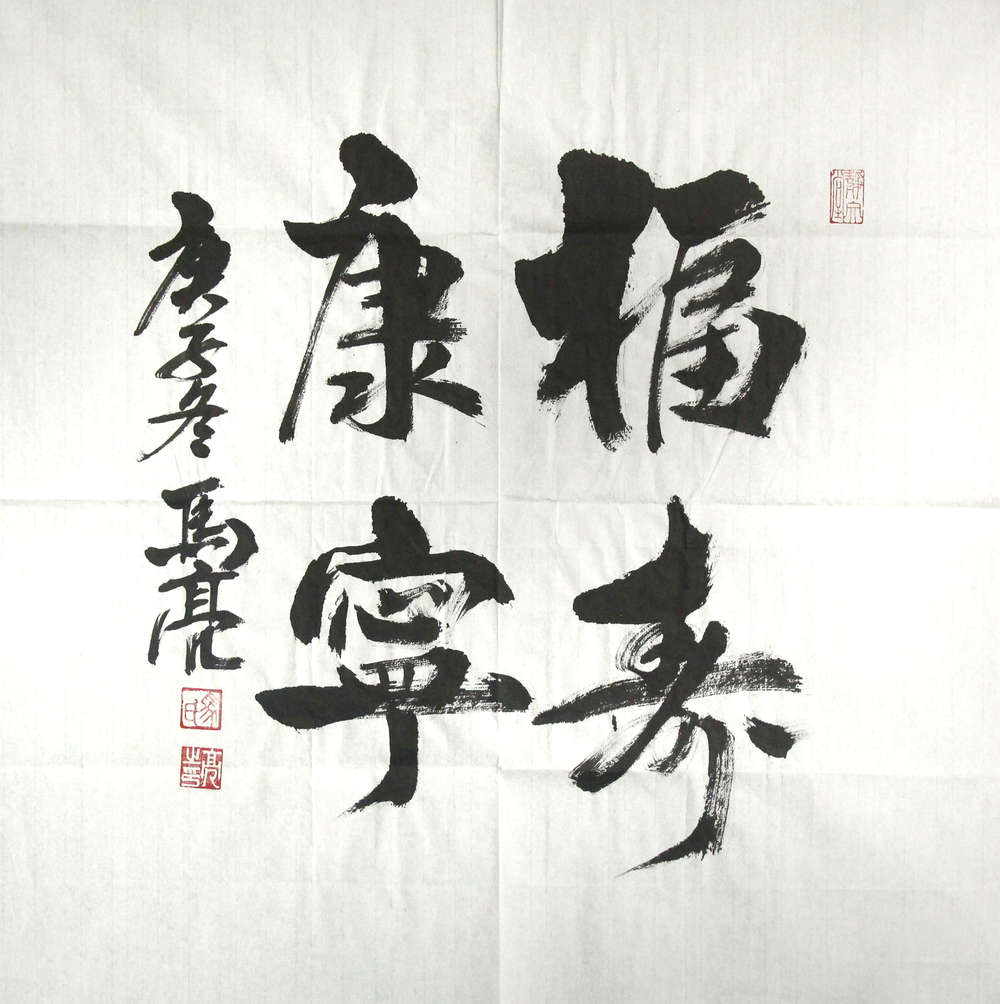 福寿
康寧
庚子冬 馬亮